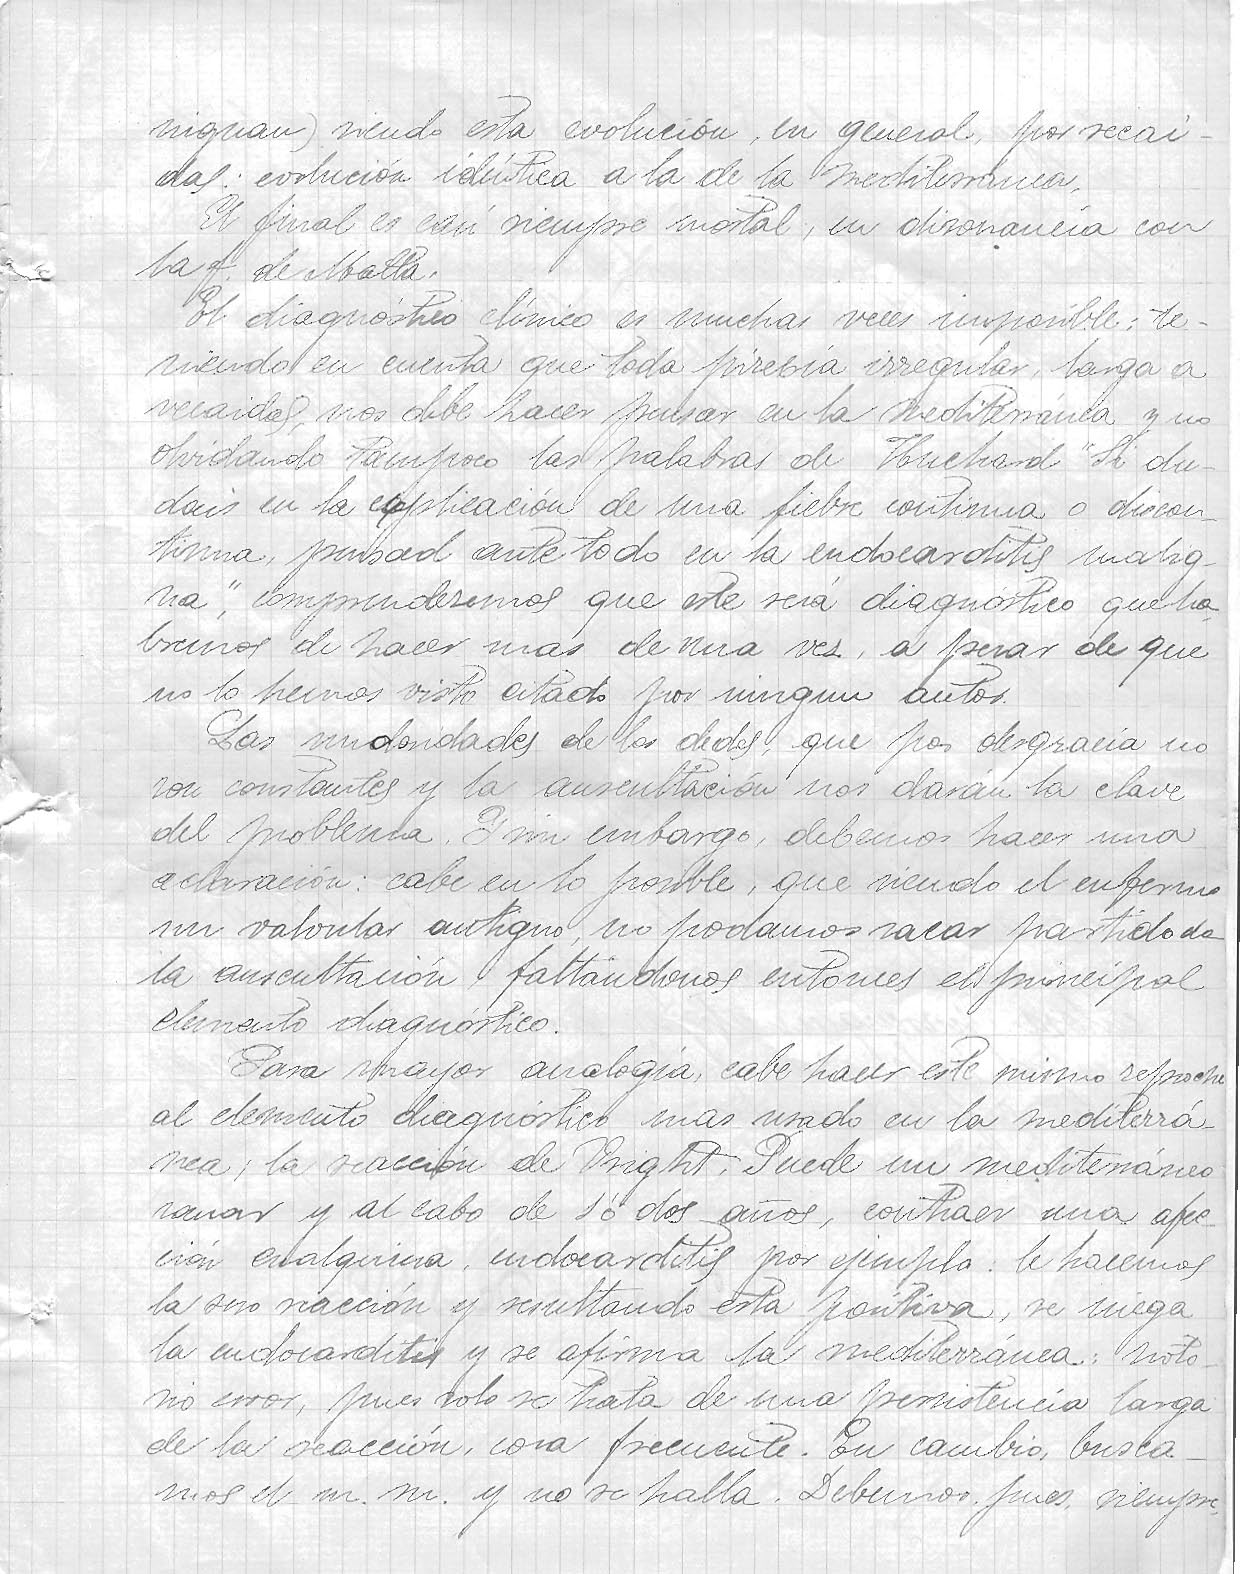 nignan) siendo esta evolución, en general, por recai-
das: evolución idéntica a la de la mediterránea.
El final es casi siempre mortal, en disonancia con
la f. de Malta.
El diagnóstico clínico es muchas veces imposible: te-
niendo en cuenta que toda pirexia irregular, larga a
recaidas, nos debe hacer pensar en la mediterránea y no
olvidando tampoco las palabras de Huchard "Si du-
dais en la explicación de una fiebre continua o discon-
tinua, pensad ante todo en la endocarditis malig-
na", comprenderemos que este será diagnóstico que ha-
bremos de hacer mas de una vez, a pesar de que
no lo hemos visto citado por ningun autor.
Las nudosidades de los dedos, que por desgracia no
son constantes y la auscultación nos darán la clave
del problema. Y sin embargo, debemos hacer una
aclaración: cabe en lo posible, que siendo el enfermo
un valvular antiguo, no podamos sacar partido de
la auscultación faltándonos entonces el principal
elemento diagnóstico.
Para mayor analogía, cabe hacer este mismo reproche
al elemento diagnóstico mas usado en la mediterrá-
nea, la reacción de Wright. Puede un mediterráneo
sanar y al cabo de 1 ó dos años, contraer una afec-
ción cualquiera, endocarditis por ejemplo: le hacemos
la sero reacción y resultando esta positiva, se niega
la endocarditis y se afirma la mediterránea: noto-
rio error, pues solo se trata de una persistencia larga
de la reacción, cosa frecuente. En cambio, busca-
mos el m. m. y no se halla. Debemos, pues, siempre,